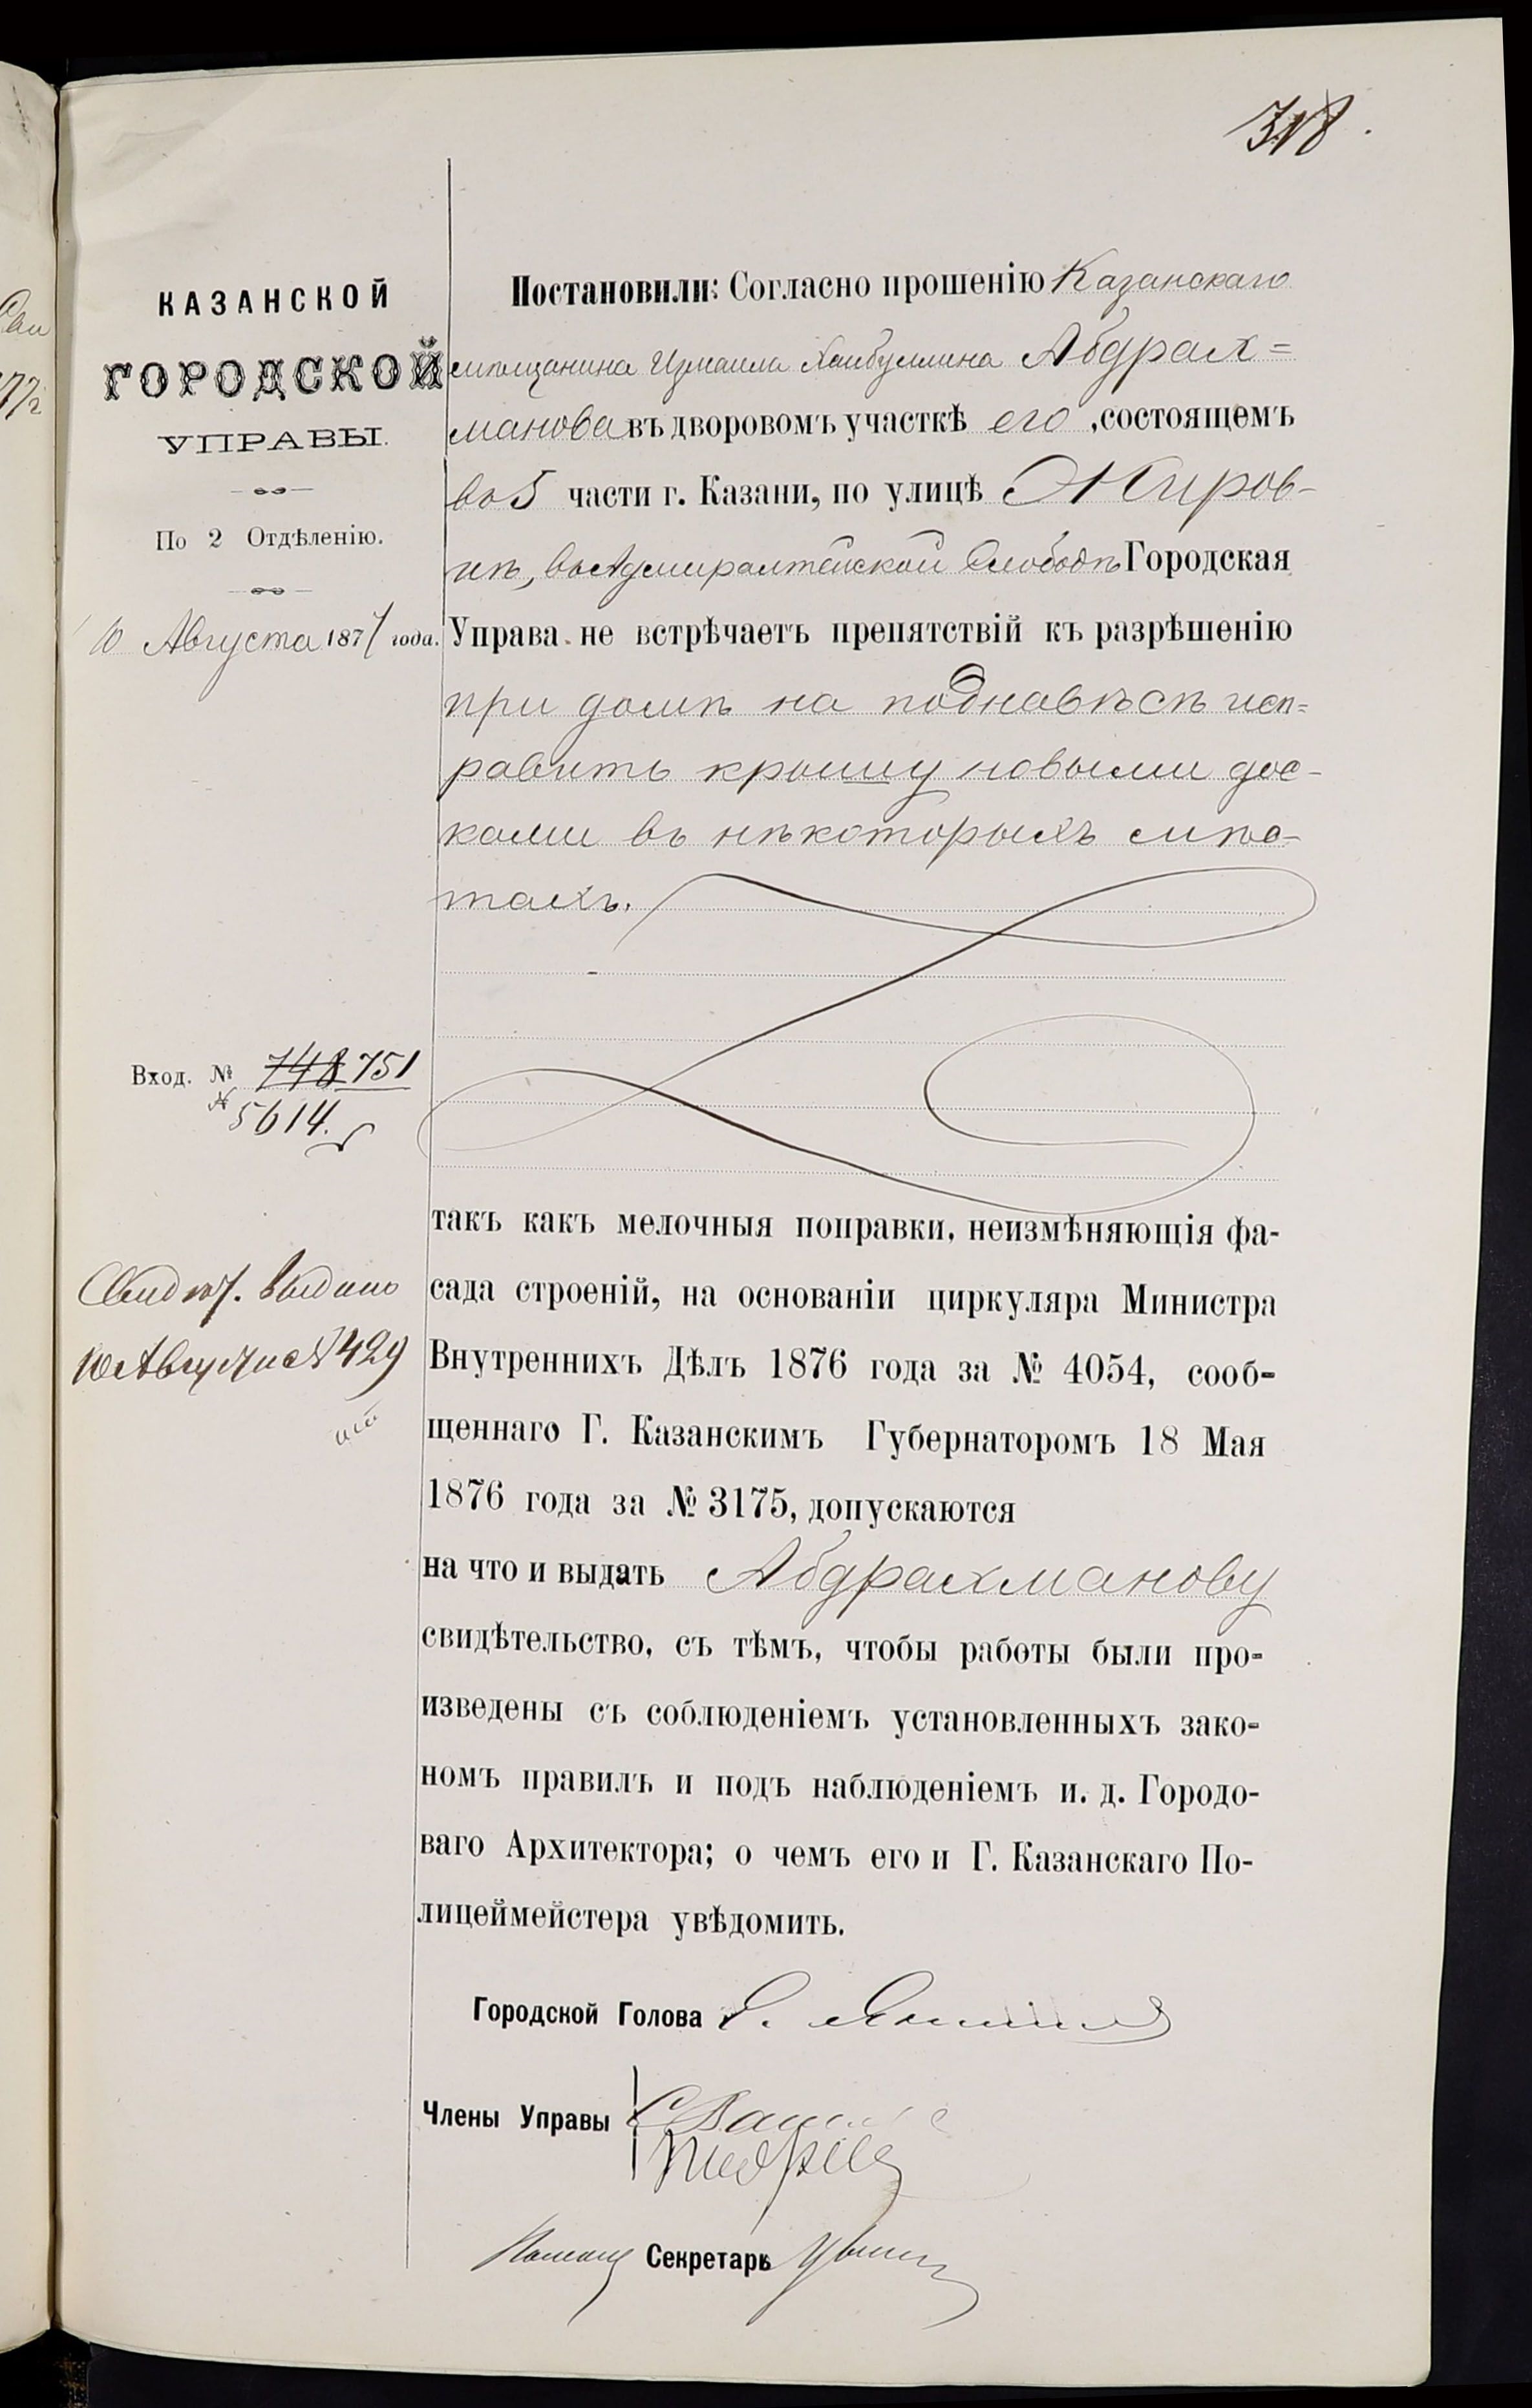 318.
КАЗАНСКОЙ
ГОРОДСКОЙ
УПРАВЫ.
По 2 Отдѣленію.
10 Августа 1877 года.
Вход. № 748 751
№ 5614.
Свидѣт. выдано
10 Августа № 429
Постановили: Согласно прошенію Казанскаго
мѣщанина Измаила Хаибуллина Абдрах=
манова въ дворовомъ участкѣ его, состоящемъ
во 5 части г. Казани, по улицѣ Жиров-
кѣ, въ Адмиралтейской Слободѣ Городская
Управа не встрѣчаетъ препятствій къ разрѣшенію
при домѣ на поднавѣсѣ исп=
равить крышу новыми дос-
ками въ нѣкоторыхъ мѣс-
тахъ.
такъ какъ мелочныя поправки, неизмѣняющія фа-
сада строеній, на основаніи циркуляра Министра
Внутреннихъ Дѣлъ 1876 года за № 4054, сооб-
щеннаго Г. Казанскимъ Губернаторомъ 18 Мая
1876 года за № 3175, допускаются
на что и выдать Абдрахманову
свидѣтельство, съ тѣмъ, чтобы работы были про-
изведены съ соблюденіемъ установленныхъ зако-
номъ правилъ и подъ наблюденіемъ и. д. Городо-
ваго Архитектора; о чемъ его и Г. Казанскаго По-
лицеймейстера увѣдомить.
Городской Голова
Члены Управы
Секретарь